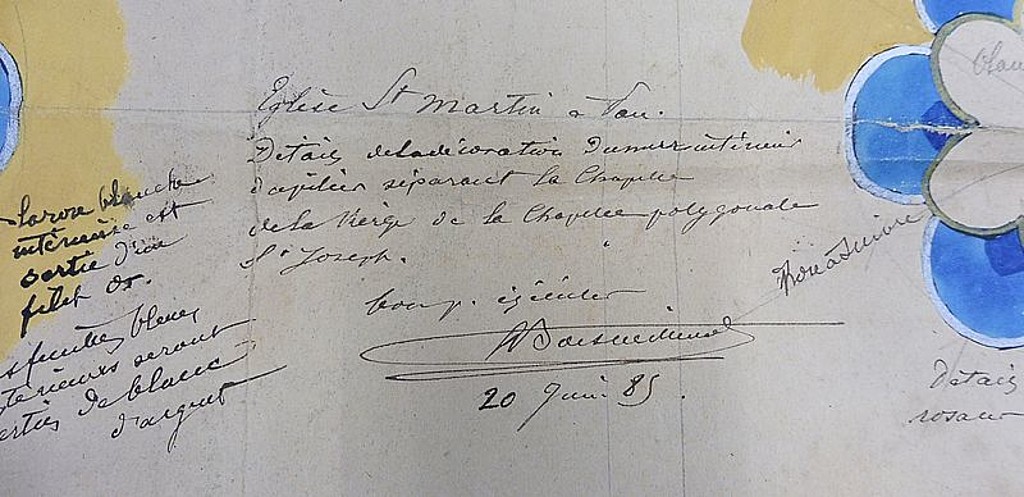 Eglise St Martin à Pau.
Détails de la décoration du mur intérieur
d'apilier séparant la Chapelle
de la Vierge de la Chapelle polygonale
St Joseph.
bon p. exécuter
20 Juin 85.
La rose blanche
intérieure est
sertie d'un
filet or.
feuilles bleues
seront
de blanc
d'argent
Rose à suivre
Détails